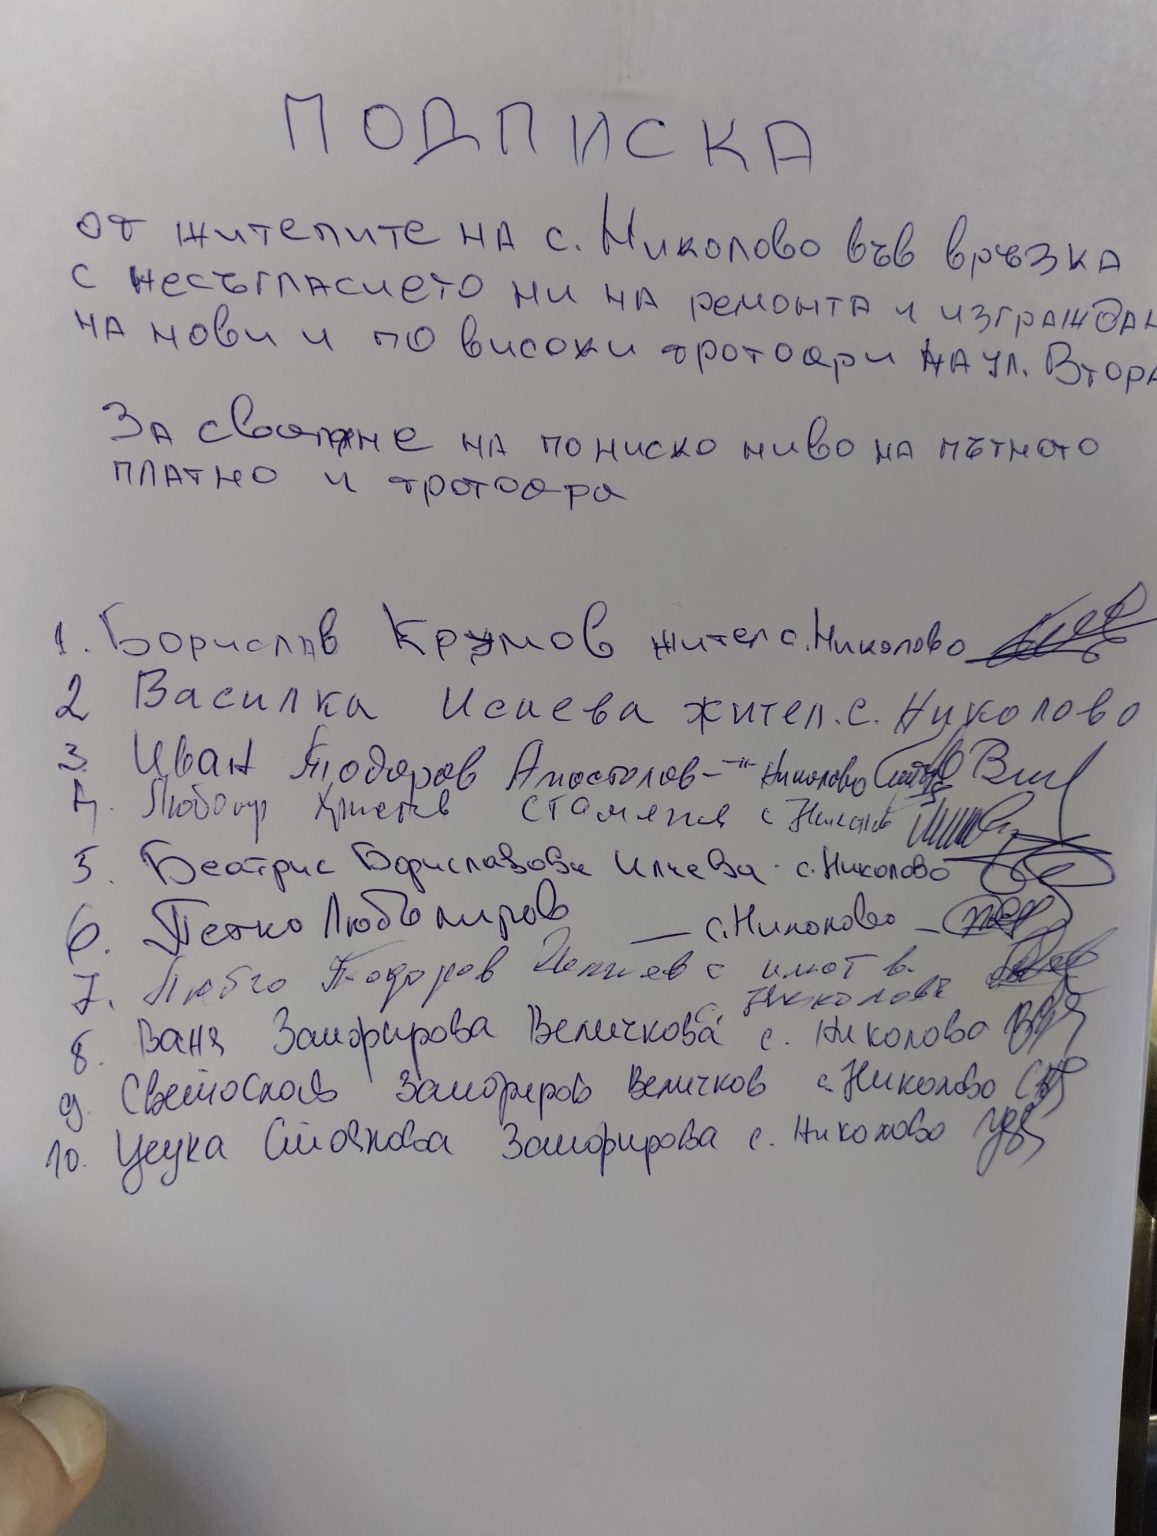 ПОДПИСКА
от жителите на с. Николово във връзка
с несъгласието ни на ремонта и изграждан
на нови и по високи тротоари на ул. Втора
За сваляне на по ниско ниво на пътното
платно и тротоара
1. Борислав Крумов жител с. Николово
2 Василка Исаева жител. с. Николово
3. Иван Тодоров Апостолов -"- Николово
4. Любомир Христов с
5. Беатрис Бориславова Илиева. с. Николово
6. Петко Любомиров — с. Николово
7. Тодоров с имот в.
с. Николово
8. Ваня Замфирова Величкова с. Николово
9. Светослав Замфиров Величков с. Николово
10. Цецка Стоянова Замфирова с. Николово